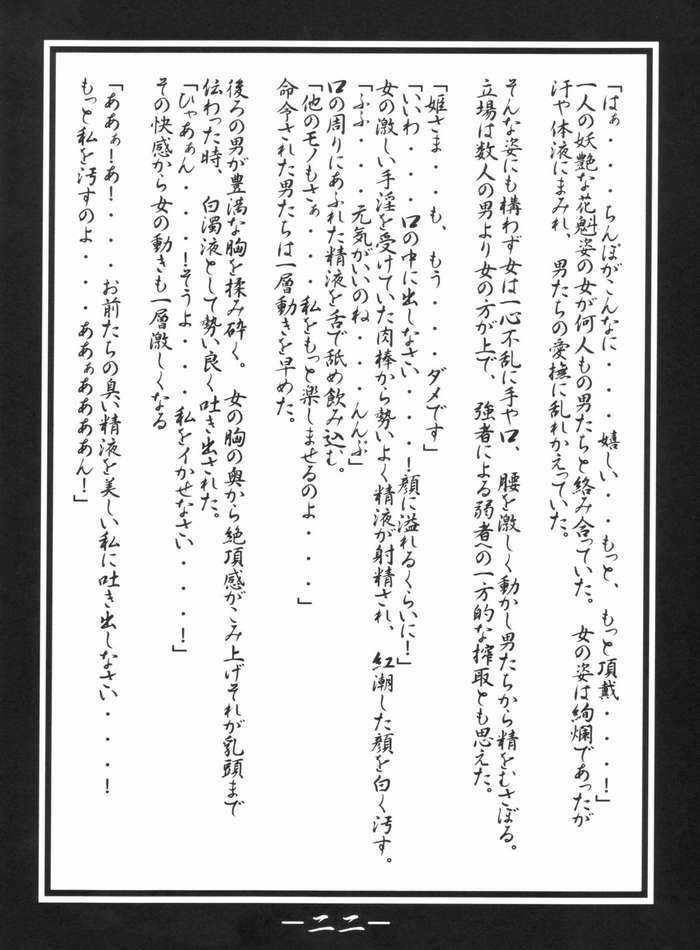 「はぁ・・・ちんぽがこんなに・・・嬉しい・・もっと、もっと頂戴・・・！」
一人の妖艶な花魁姿の女が何人もの男たちと絡み合っていた。　女の姿は絢爛であったが
汗や体液にまみれ、　男たちの愛撫に乱れかえっていた。
そんな姿にも構わず女は一心不乱に手や口、　腰を激しく動かし男たちから精をむさぼる。
立場は数人の男より女の方が上で、　強者による弱者への一方的な搾取とも思えた。
「姫さま・・も、もう・・・ダメです」
「いいわ・・・口の中に出しなさい・・・！顔に溢れるくらいに！」
女の激しい手淫を受けていた肉棒から勢いよく精液が射精され、　紅潮した顔を白く汚す。
「ふふ・・・元気がいいのね・・・んんぷ」
口の周りにあふれた精液を舌で舐め飲み込む。
「他のモノもさぁ・・・私をもっと楽しませるのよ・・・」
命令された男たちは一層動きを早めた。
後ろの男が豊満な胸を揉み砕く。　女の胸の奥から絶頂感がこみ上げそれが乳頭まで
伝わった時、　白濁液として勢い良く吐き出された。
「ひゃあぁん・・・！そうよ・・・私をイかせなさい・・・！」
その快感から女の動きも一層激しくなる
「ああぁ！あ！・・・お前たちの臭い精液を美しい私に吐き出しなさい・・・！
もっと私を汚すのよ・・・あああぁああああん！」
－二二－